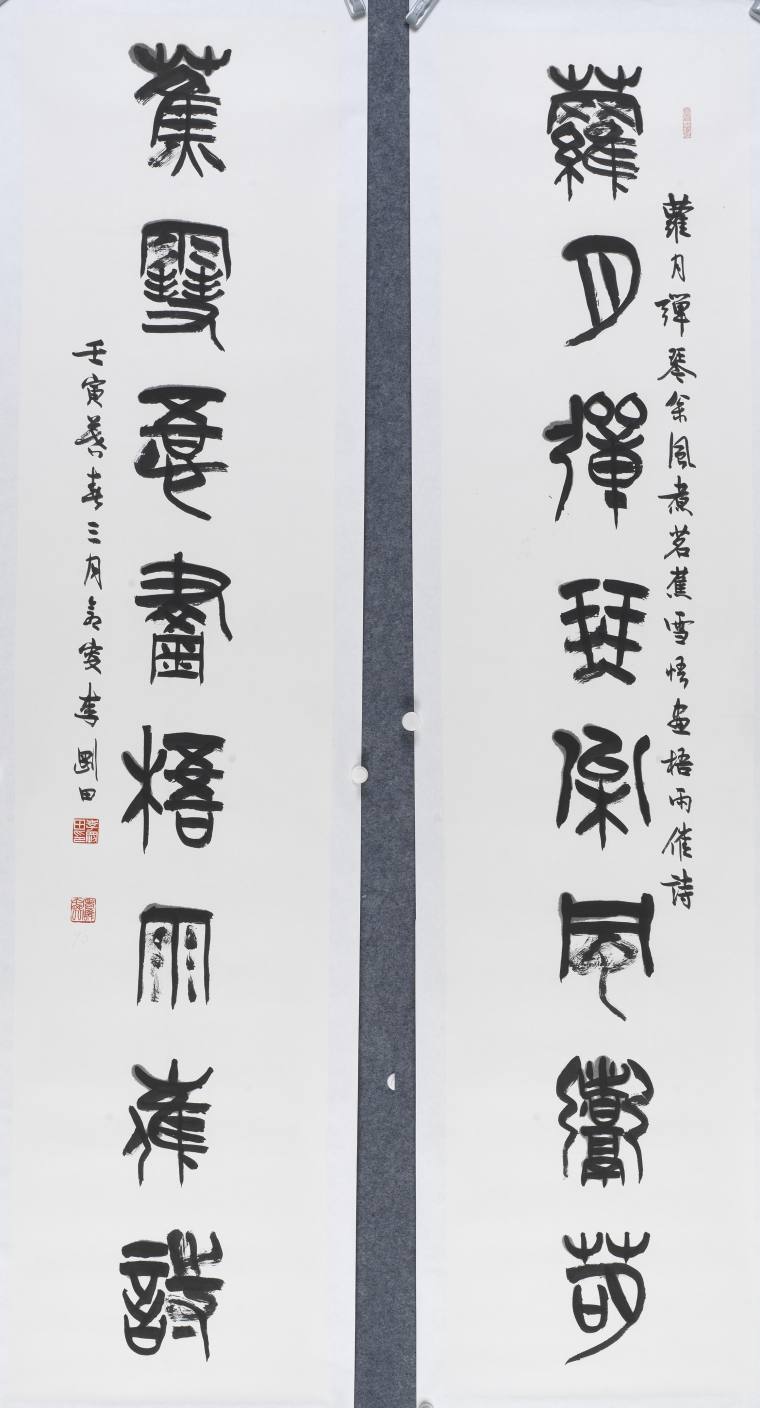 蘿月彈琴枀風煮茗蕉雪悟畫梧雨催詩
蘿月彈琴松風煮茗
蕉雪悟畫梧雨催詩
壬寅暮春三月李剛田